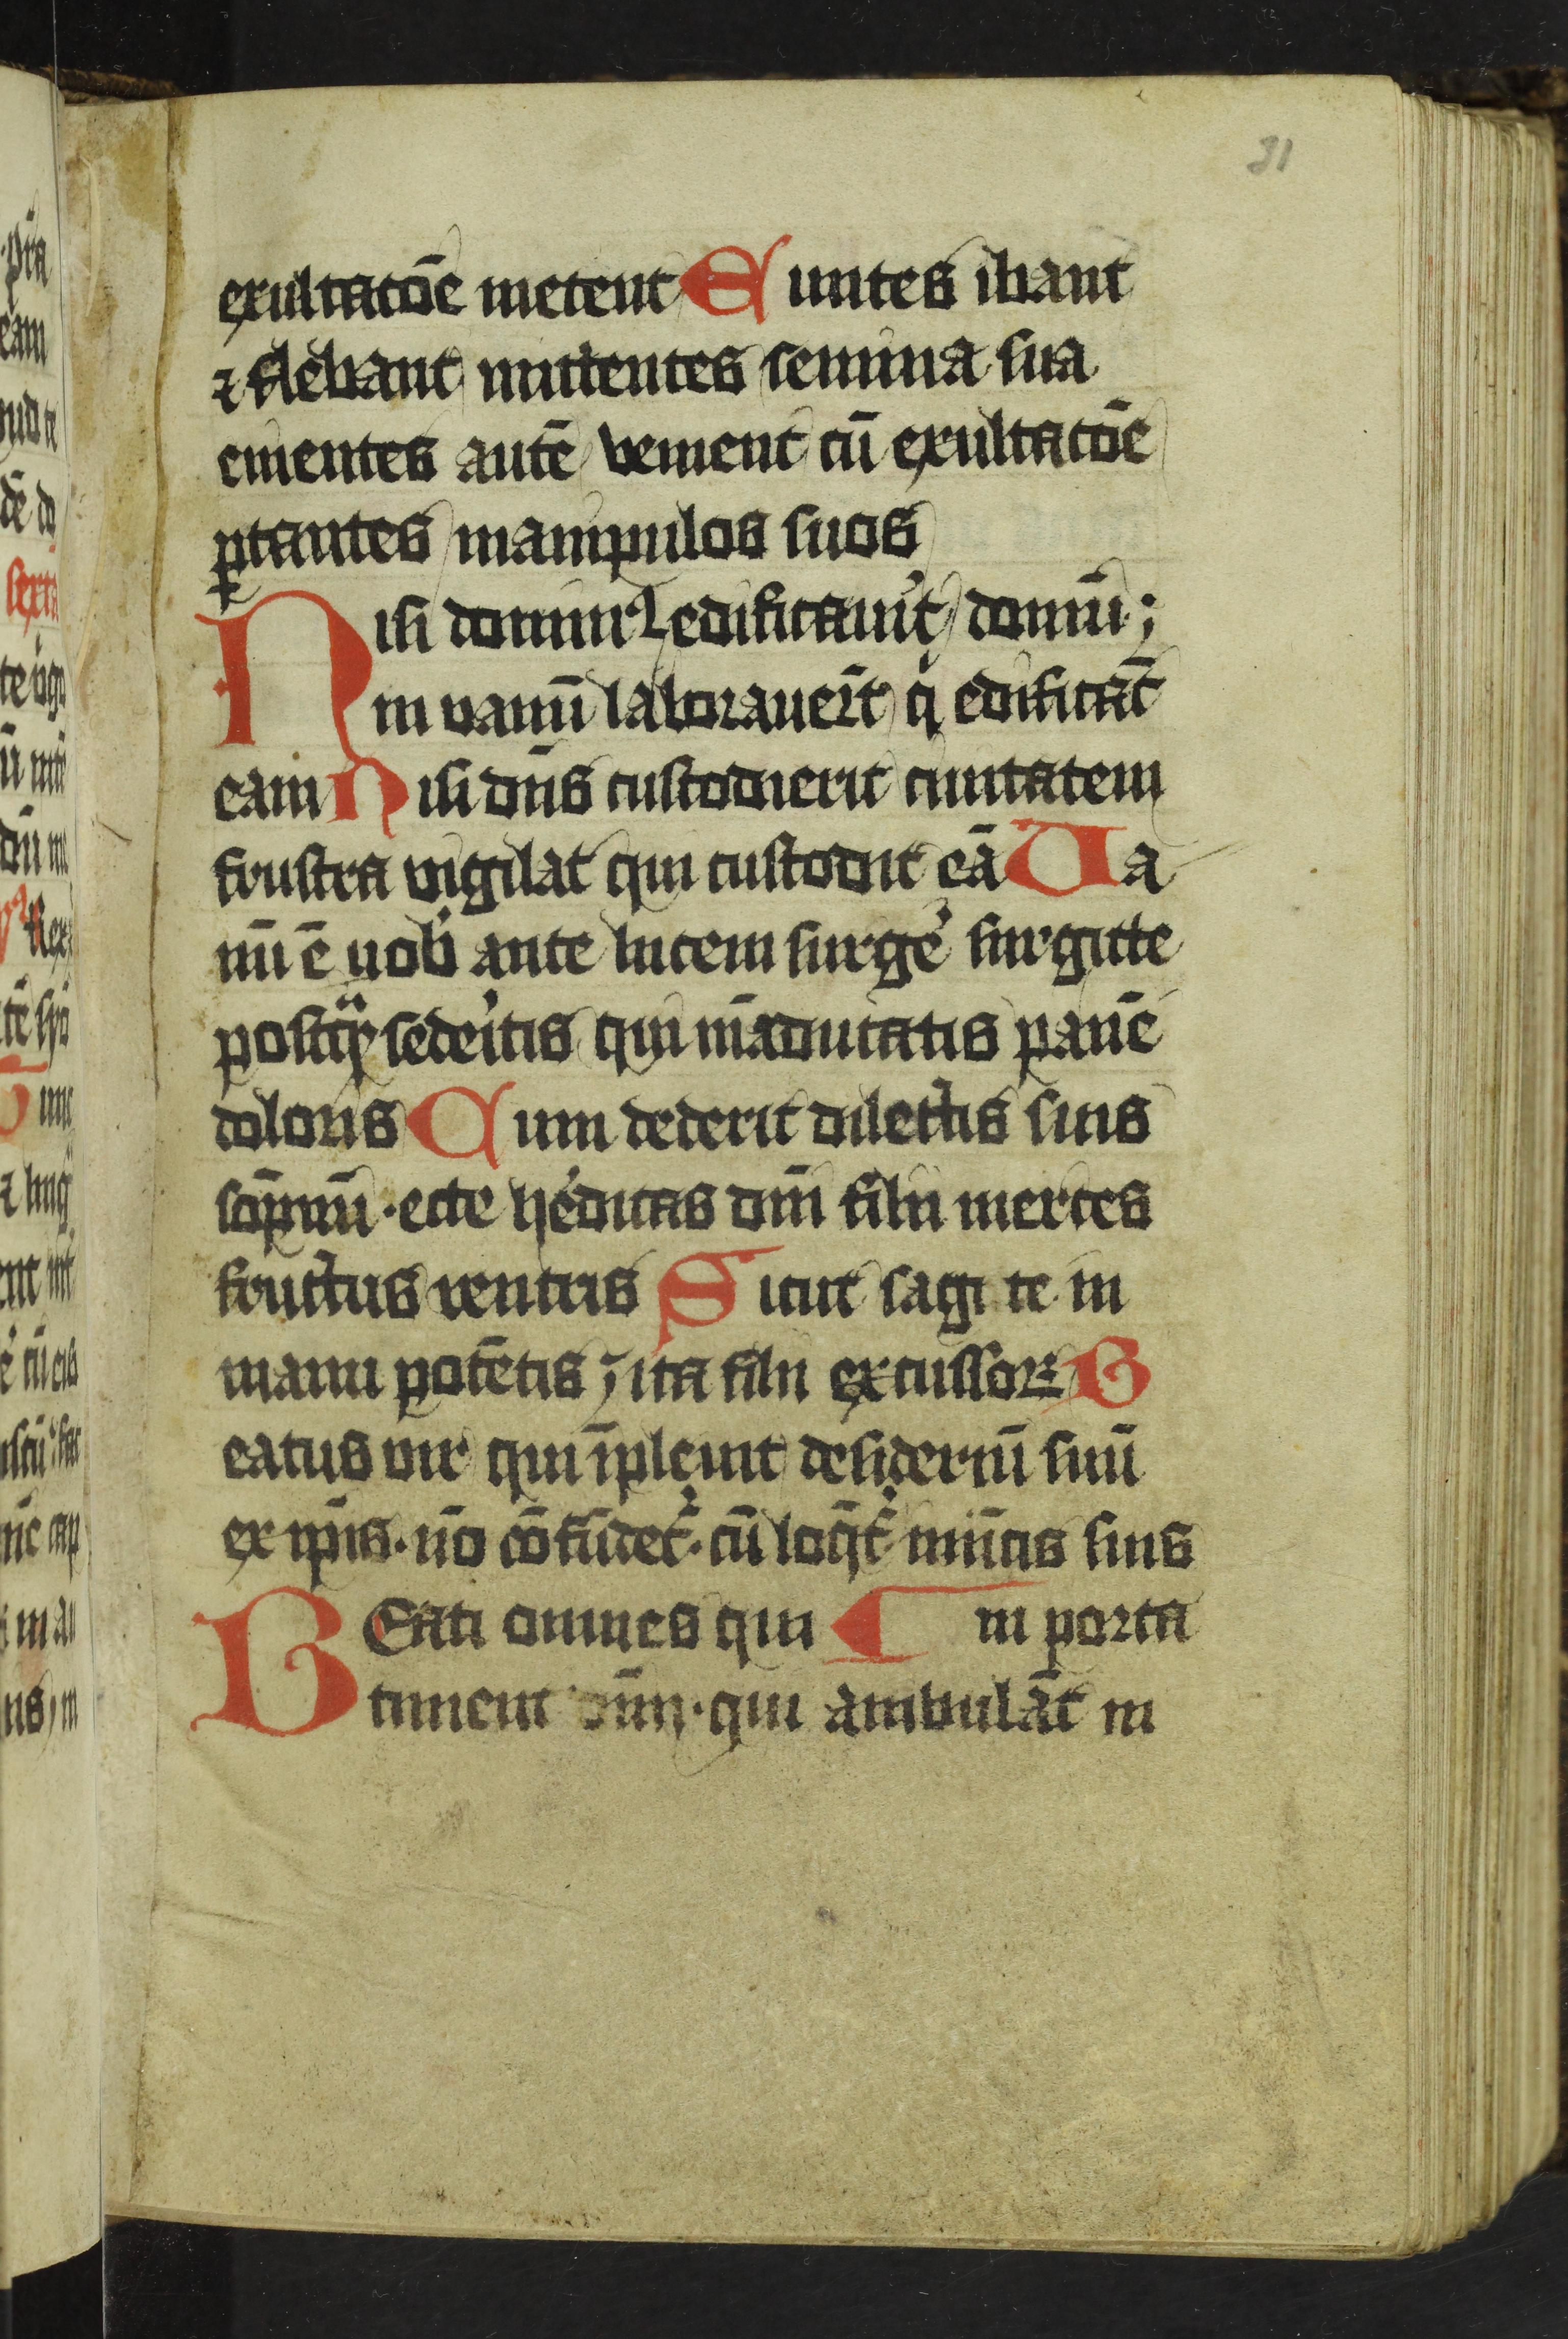 31
exultatōe metent Euntes ibant
⁊ flebant mittentes semina sua
euientes autē venient cū exultatōe
ꝑtantes manipulos suos
Nisi dominꝰ edificauit̾ domū;
in vanū laborauer̄t q̇ edificāt
eam Nisi dn̄s custodierit ciuitatem
frustra vigilat qui custodit eā Ua
nū ē uob̾ ante lucem surge̾ surgitte
postqꝫ sede̾itis qui māducatis panē
doloris Cum dederit dilectis suis
sōpnū · ecce he̾ditas dn̄i filii merces
fructus ventris Sicut sagi te in
manu potētis ; ita filii excussoꝝ B
eatus vir qui īpleuit desideriū suū
ex ip̄is · nō cōfūdet᷑ · cū loq̄t᷑ inīıcis suis
BEati omnes qui ¶ in porta
timent dn̄m · qui ambulāt in
pr̄a
eam
dē do
sexta